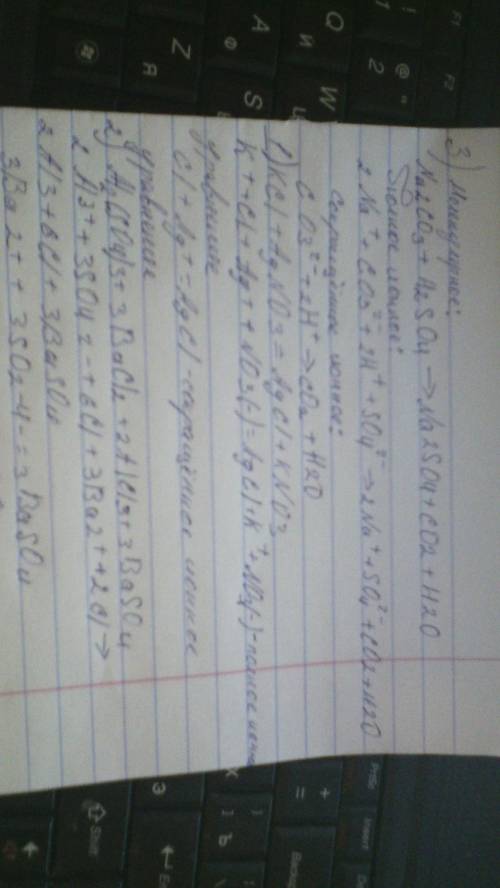 3) Молекулярное:
Na2CO3 + H2SO4 → Na2SO4 + CO2 + H2O
Полное ионное:
2Na⁺ + CO3²⁻ + 2H⁺ + SO4²⁻ → 2Na⁺ + SO4²⁻ + CO2 + H2O
Сокращённое ионное:
CO3²⁻ + 2H⁺ → CO2 + H2O
1) KCl + AgNO3 = AgCl + KNO3
K + -Cl + Ag+ + NO3(-) = AgCl + K⁺ + NO3(-) - полное ионное
уравнение
Cl + Ag+ = AgCl - сокращённое ионное
уравнение
2) Al2(SO4)3 + 3BaCl2 + 2AlCl3 + 3BaSO4
2 Al3+ + 3SO4 2- + 6Cl + 3Ba2+ + 2Cl →
2Al3 + 6Cl + 3BaSO4
3Ba2+ + 3SO2-4 -: 3BaSO4
F1
F2
!
1
@
"
2
Q
Й
W
Ц
A
Ф
S
Z
Я
+
=
Backs
Insert
Э
X
}
]
Ъ
Shift